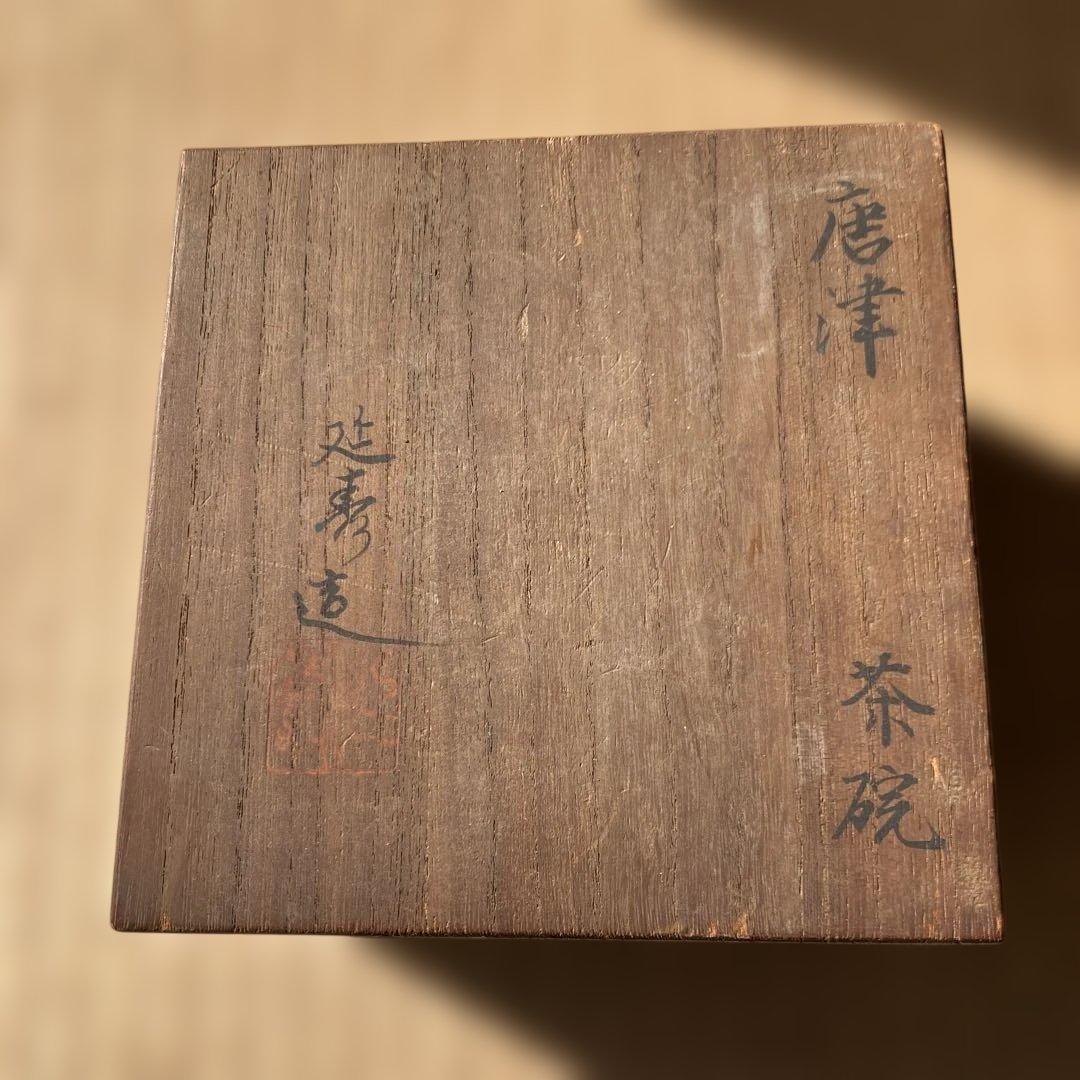 唐津
茶碗
延寿造